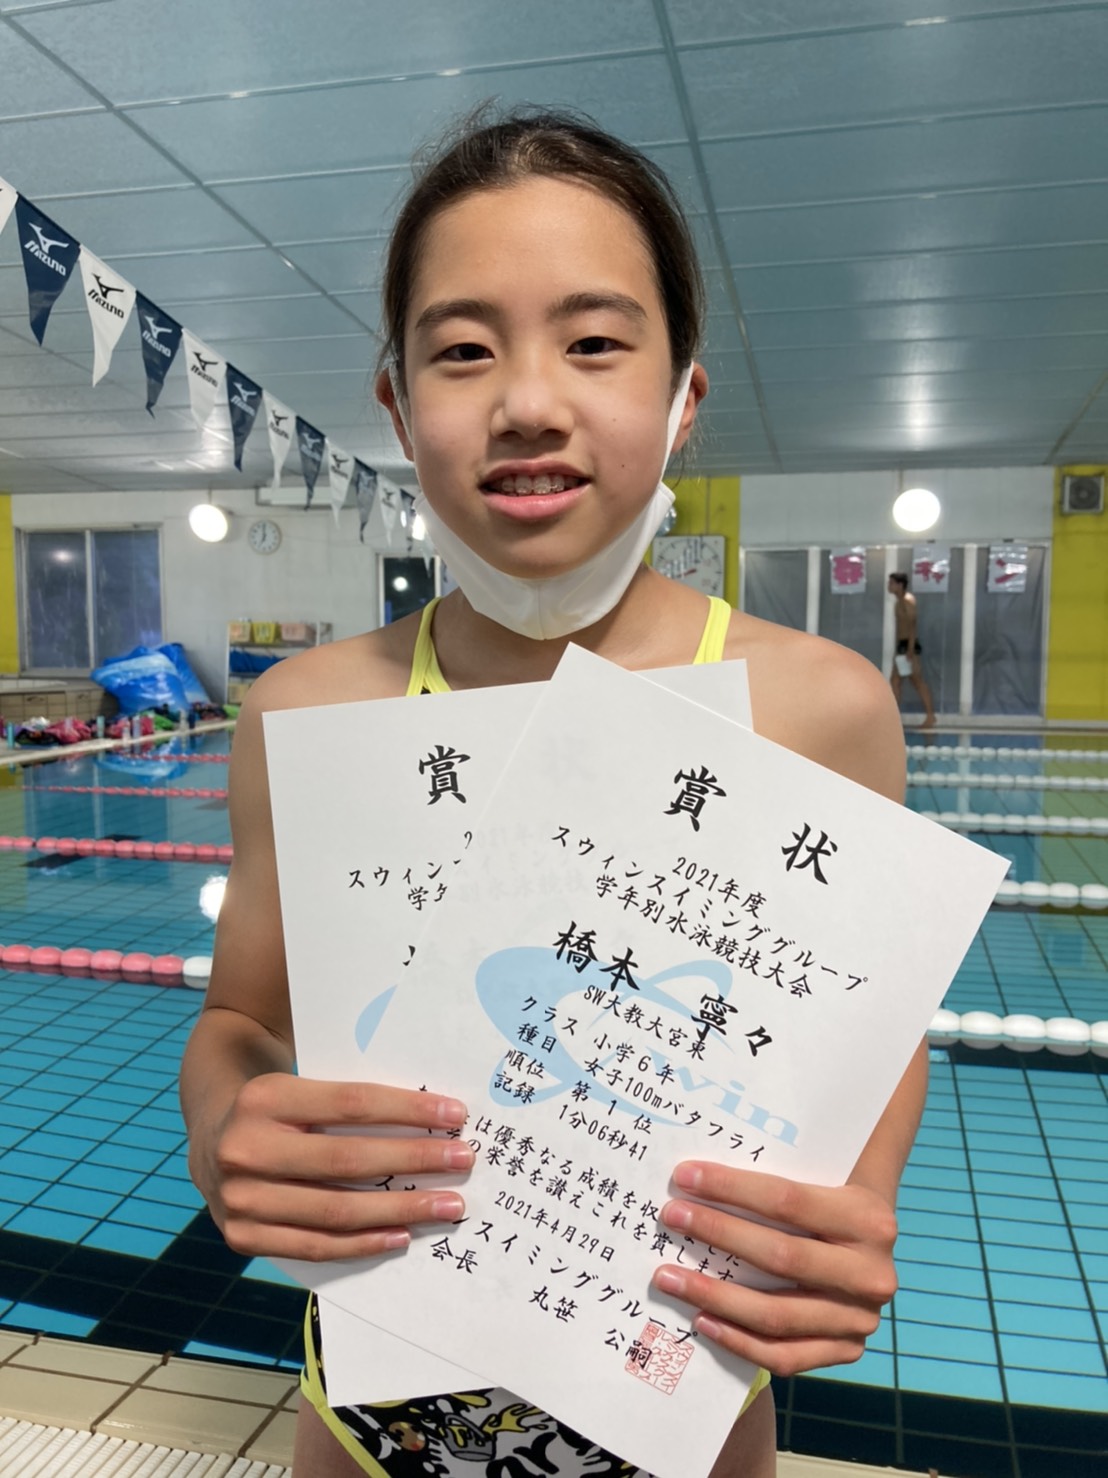 MIZUNO
MIZUNO
MIZUNO
MIZUNO
MIZUNO
賞
スウィン
賞 状
2021年度
スウィンスイミンググループ
学年別水泳競技大会
橋本 寧々
SW大教大宮東
クラス 小学6年
種目 女子100mバタフライ
順位 第 1 位
記録 1分06秒41
は優秀なる成績を収
の栄誉を讃えこれを賞しま
2021年4月29日
ンスイミンググループ
会長 丸笹 公嗣
Swin